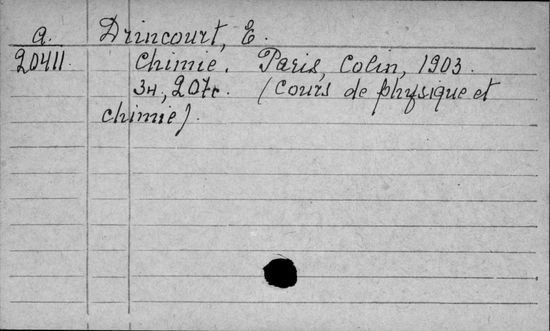 a. Drincourt, E.
20411 Chimie. Paris, Colin, 1903.
(Cours de physique et
chimie).